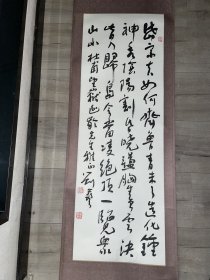 岱宗夫如何齊魯青未了造化鍾
神秀陰陽割昏曉盪胸生雲決
眥入歸鳥會當凌絕頂一覽衆
山小 杜甫望嶽 先生雅正 劉藝